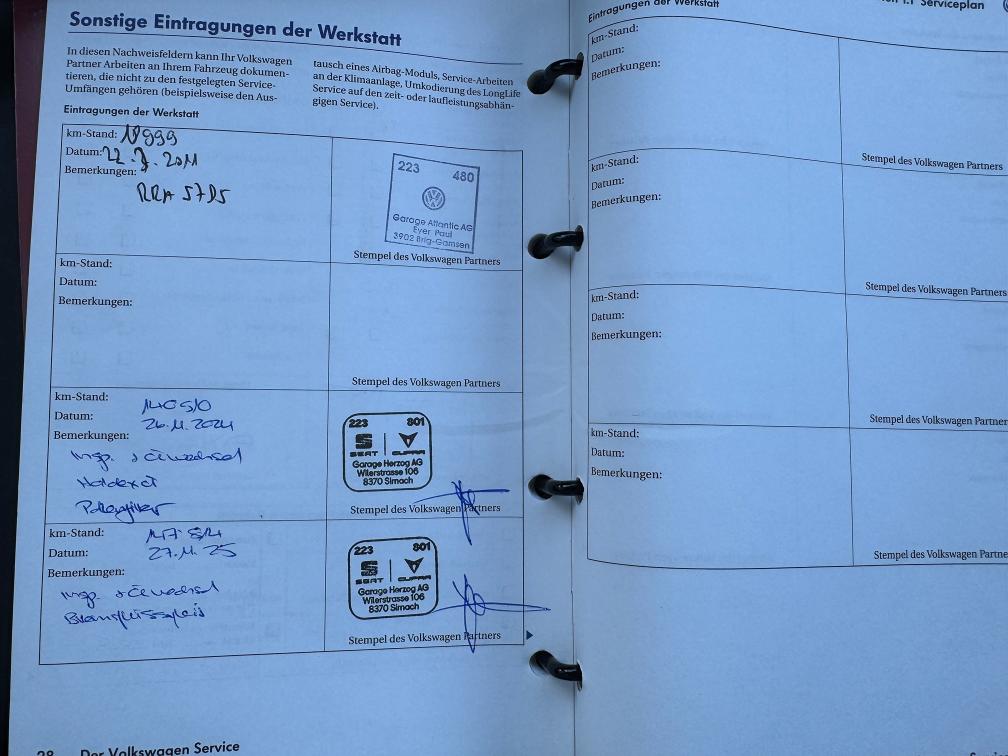 Sonstige Eintragungen der Werkstatt
In diesen Nachweisfeldern kann Ihr Volkswagen
Partner Arbeiten an Ihrem Fahrzeug dokumen-
tieren, die nicht zu den festgelegten Service-
Umfängen gehören (beispielsweise den Aus-
tausch eines Airbag-Moduls, Service-Arbeiten
an der Klimaanlage, Umkodierung des LongLife
Service auf den zeit- oder laufleistungsabhän-
gigen Service).
Eintragungen der Werkstatt
km-Stand:
Datum: 22.7.2011
Bemerkungen:
RRA 57D5
223 480
Garage Atlantic AG
Eyer Paul
3902 Brig-Gamsen
Stempel des Volkswagen Partners
km-Stand:
Datum:
Bemerkungen:
Stempel des Volkswagen Partners
km-Stand: 140510
Datum: 26.11.2024
Bemerkungen:
Insp. + Ölwechsel
Haldexöl
Pollenfilter
223 801
SEAT CUPRA
Garage Herzog AG
Wilerstrasse 106
8370 Sirnach
Stempel des Volkswagen Partners
km-Stand:
Datum: 27.11.25
Bemerkungen:
Insp. + Ölwechsel
Bremsflüssigkeit
223 801
SEAT CUPRA
Garage Herzog AG
Wilerstrasse 106
8370 Sirnach
Stempel des Volkswagen Partners
28 Der Volkswagen Service
Serviceplan
Eintragungen der Werkstatt
km-Stand:
Datum:
Bemerkungen:
Stempel des Volkswagen Partners
km-Stand:
Datum:
Bemerkungen:
Stempel des Volkswagen Partners
km-Stand:
Datum:
Bemerkungen:
Stempel des Volkswagen Partner
km-Stand:
Datum:
Bemerkungen:
Stempel des Volkswagen Partne